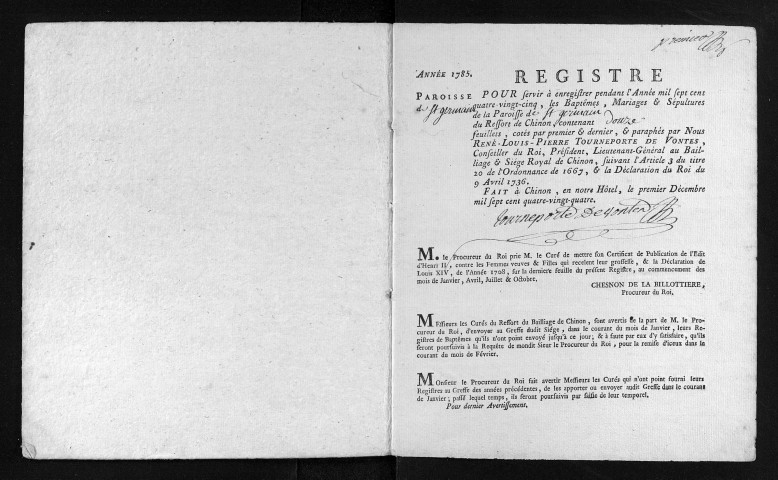 premier
ANNÉE 1785.
REGISTRE
PAROISSE
de St germain
POUR servir à enregistrer pendant l'Année mil sept cent
quatre-vingt-cinq, les Baptêmes, Mariages & Sépultures
de la Paroisse de St germain
du Ressort de Chinon, contenant douze
feuillets, cotés par premier & dernier, & paraphés par Nous
RENÉ-LOUIS-PIERRE TOURNEPORTE DE VONTES,
Conseiller du Roi, Président, Lieutenant-Général au Bail-
liage & Siége Royal de Chinon, suivant l'Article 3 du titre
20 de l'Ordonnance de 1667, & la Déclaration du Roi du
9 Avril 1736.
FAIT à Chinon, en notre Hôtel, le premier Décembre
mil sept cent quatre-vingt-quatre.
Tourneporte De vontes
M. le Procureur du Roi prie M. le Curé de mettre son Certificat de Publication de l'Edit
d'Henri II, contre les Femmes veuves & Filles qui recelent leur grossesse, & la Déclaration de
Louis XIV, de l'Année 1708, sur la derniere feuille du présent Registre, au commencement des
mois de Janvier, Avril, Juillet & Octobre.
CHESNON DE LA BILLOTTIERE,
Procureur du Roi.
MEssieurs les Curés du Ressort du Bailliage de Chinon, sont avertis de la part de M. le Pro-
cureur du Roi, d'envoyer au Greffe dudit Siége, dans le courant du mois de Janvier, leurs Re-
gistres de Baptêmes qu'ils n'ont point envoyé jusqu'à ce jour; & à faute par eux d'y satisfaire, qu'ils
seront poursuivis à la Requête de mondit Sieur le Procureur du Roi, pour la remise d'iceux dans le
courant du mois de Février.
Monsieur le Procureur du Roi fait avertir Messieurs les Curés qui n'ont point fourni leurs
Registres au Greffe des années précédentes, de les apporter ou envoyer audit Greffe dans le courant
de Janvier; passé lequel temps, ils seront poursuivis par saisie de leur temporel.
Pour dernier Avertissement.